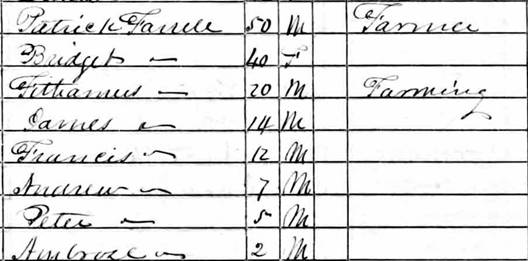 Patrick Farrell 50 M Farmer
Bridget — 40 F
— 20 M Farming
James — 14 M
Francis — 12 M
Andrew — 7 M
Peter — 5 M
Ambrose — 2 M